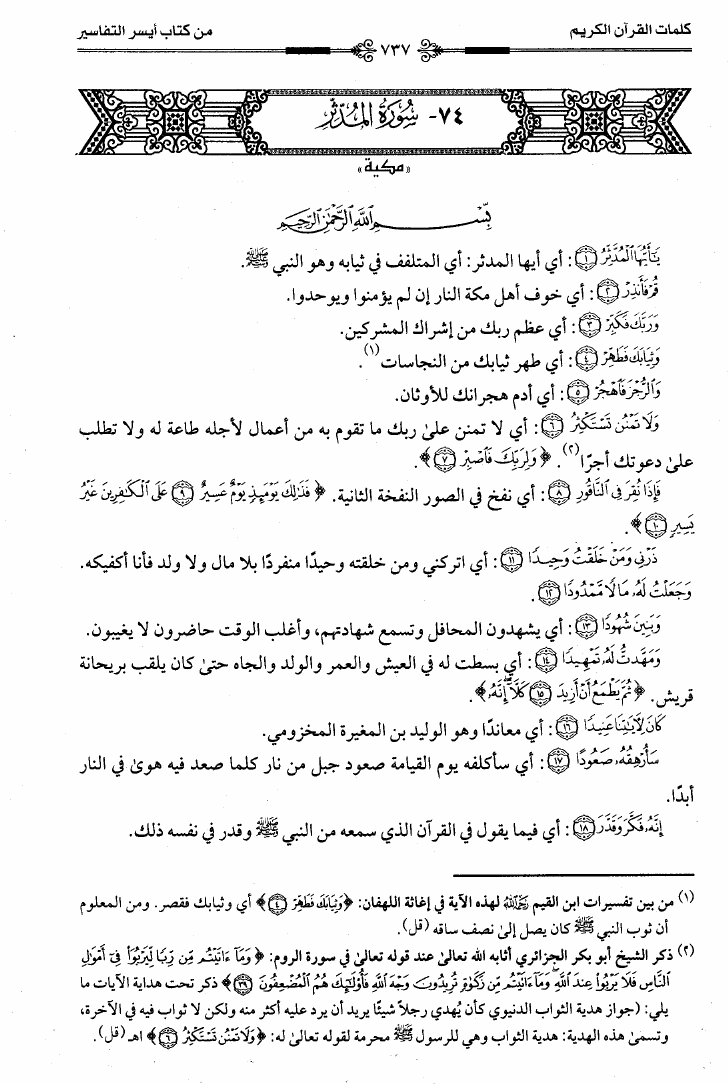 كلمات القرآن الكريم
من كتاب أيسر التفاسير
٧٣٧
٧٤- سُورَةُ المُدَّثِّرِ
«مكية»
بِسْمِ اللَّهِ الرَّحْمَٰنِ الرَّحِيمِ
يَٰٓأَيُّهَا ٱلْمُدَّثِّرُ ﴿١﴾: أي أيها المدثر: أي المتلفف في ثيابه وهو النبي ﷺ.
قُمْ فَأَنذِرْ ﴿٢﴾: أي خوف أهل مكة النار إن لم يؤمنوا ويوحدوا.
وَرَبَّكَ فَكَبِّرْ ﴿٣﴾: أي عظم ربك من إشراك المشركين.
وَثِيَابَكَ فَطَهِّرْ ﴿٤﴾: أي طهر ثيابك من النجاسات(١).
وَٱلرُّجْزَ فَٱهْجُرْ ﴿٥﴾: أي أدم هجرانك للأوثان.
وَلَا تَمْنُن تَسْتَكْثِرُ ﴿٦﴾: أي لا تمنن علىٰ ربك ما تقوم به من أعمال لأجله طاعة له ولا تطلب
علىٰ دعوتك أجرًا(٢). ﴿وَلِرَبِّكَ فَٱصْبِرْ ﴿٧﴾﴾.
فَإِذَا نُقِرَ فِي ٱلنَّاقُورِ ﴿٨﴾: أي نفخ في الصور النفخة الثانية. ﴿فَذَٰلِكَ يَوْمَئِذٍ يَوْمٌ عَسِيرٌ ﴿٩﴾ عَلَى ٱلْكَٰفِرِينَ غَيْرُ
يَسِيرٍ ﴿١٠﴾﴾.
ذَرْنِي وَمَنْ خَلَقْتُ وَحِيدًا ﴿١١﴾: أي اتركني ومن خلقته وحيدًا منفردًا بلا مال ولا ولد فأنا أكفيكه.
وَجَعَلْتُ لَهُۥ مَالًا مَّمْدُودًا ﴿١٢﴾.
وَبَنِينَ شُهُودًا ﴿١٣﴾: أي يشهدون المحافل وتسمع شهادتهم، وأغلب الوقت حاضرون لا يغيبون.
وَمَهَّدتُّ لَهُۥ تَمْهِيدًا ﴿١٤﴾: أي بسطت له في العيش والعمر والولد والجاه حتىٰ كان يلقب بريحانة
قريش. ﴿ثُمَّ يَطْمَعُ أَنْ أَزِيدَ ﴿١٥﴾ كَلَّآ ۖ إِنَّهُۥ﴾.
كَانَ لِءَايَٰتِنَا عَنِيدًا ﴿١٦﴾: أي معاندًا وهو الوليد بن المغيرة المخزومي.
سَأُرْهِقُهُۥ صَعُودًا ﴿١٧﴾: أي سأكلفه يوم القيامة صعود جبل من نار كلما صعد فيه هوىٰ في النار
أبدًا.
إِنَّهُۥ فَكَّرَ وَقَدَّرَ ﴿١٨﴾: أي فيما يقول في القرآن الذي سمعه من النبي ﷺ وقدر في نفسه ذلك.
(١) من بين تفسيرات ابن القيم رحمه الله لهذه الآية في إغاثة اللهفان: ﴿وَثِيَابَكَ فَطَهِّرْ ﴿٤﴾﴾ أي وثيابك فقصر. ومن المعلوم
أن ثوب النبي ﷺ كان يصل إلىٰ نصف ساقه (قل).
(٢) ذكر الشيخ أبو بكر الجزائري أثابه الله تعالىٰ عند قوله تعالىٰ في سورة الروم: ﴿وَمَآ ءَاتَيْتُم مِّن رِّبًا لِّيَرْبُوَا۟ فِىٓ أَمْوَٰلِ
ٱلنَّاسِ فَلَا يَرْبُوا۟ عِندَ ٱللَّهِ ۖ وَمَآ ءَاتَيْتُم مِّن زَكَوٰةٍ تُرِيدُونَ وَجْهَ ٱللَّهِ فَأُو۟لَٰٓئِكَ هُمُ ٱلْمُضْعِفُونَ ﴿٣٩﴾﴾ ذكر تحت هداية الآيات ما
يلي: (جواز هدية الثواب الدنيوي كأن يُهدي رجلاً شيئًا يريد أن يرد عليه أكثر منه ولكن لا ثواب فيه في الآخرة،
وتسمىٰ هذه الهدية: هدية الثواب وهي للرسول ﷺ محرمة لقوله تعالىٰ له: ﴿وَلَا تَمْنُن تَسْتَكْثِرُ ﴿٦﴾﴾ اهـ (قل).